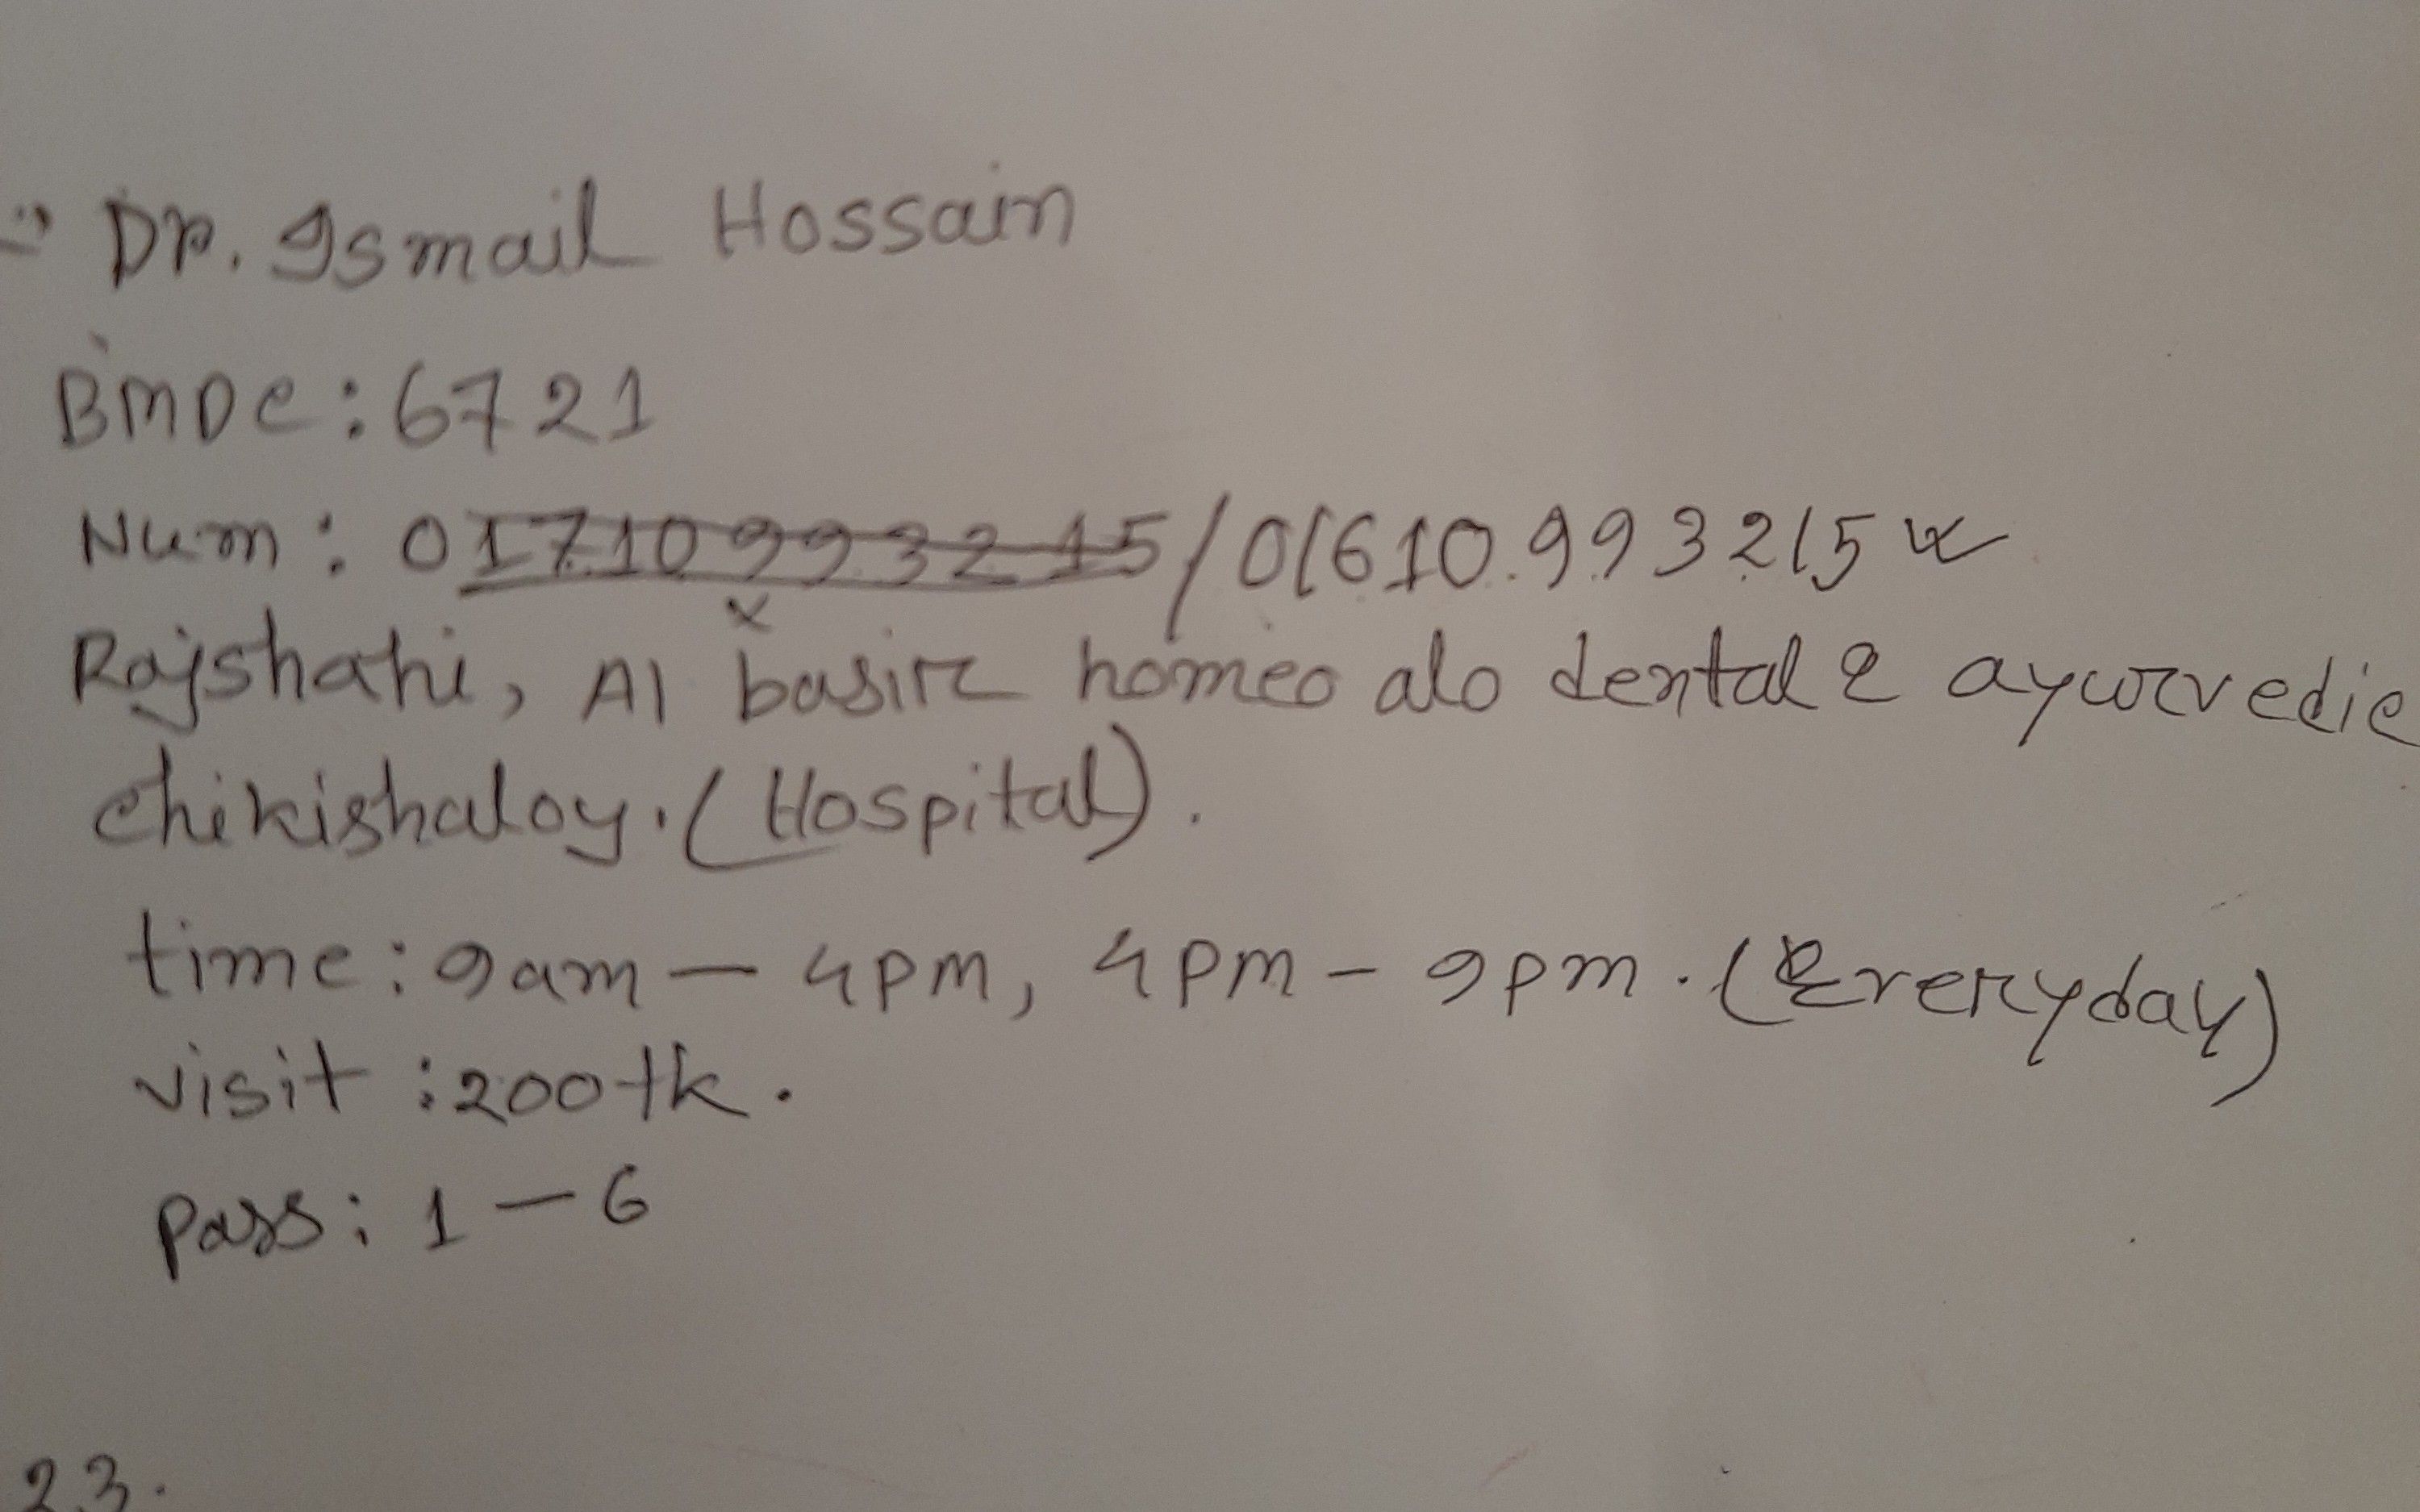 Dr. Ismail Hossain
BMDC: 6721
Num: 01710993215/01610.993215
Rajshahi, Al basir homeo alo dental & ayurvedic
chikishaloy. (Hospital).
time: 9am - 4pm, 4pm - 9pm. (Everyday)
visit: 200tk.
Pass: 1-6
23.